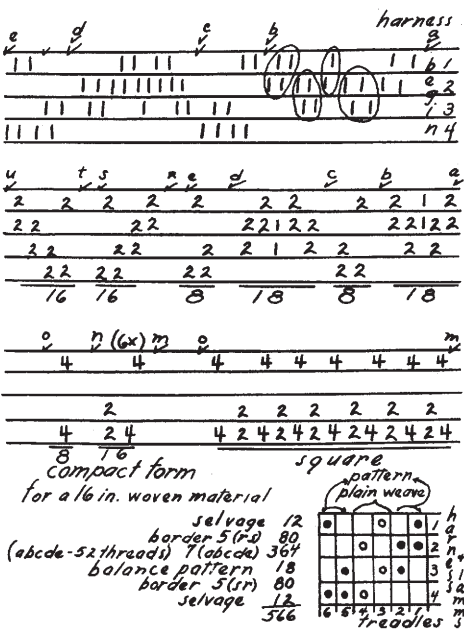 harness
e d c b a
b 1
e 2
g
i 3
n 4
u t s r e d c b a
2 2 2 2 2 2 2 2 2 1 2
2 2 2 2 2 2 1 2 2 2 2 1 2 2
2 2 2 2 2 2 1 2 2 2 2
2 2 2 2 2 2 2 2
16 16 8 18 8 18
o n (6x) m o m
4 4 4 4 4 4 4 4
2 2 2 2 2 2
4 2 4 4 2 4 2 4 2 4 2 4 2 4
8 16
compact form
square
for a 16 in. woven material
selvage 12
border 5 (rs) 80
(abcde-52 threads) 7 (abcde) 364
balance pattern 18
border 5 (sr) 80
selvage 12
566
pattern
plain weave
harness
1
2
3
4
6 5 4 3 2 1
treadles